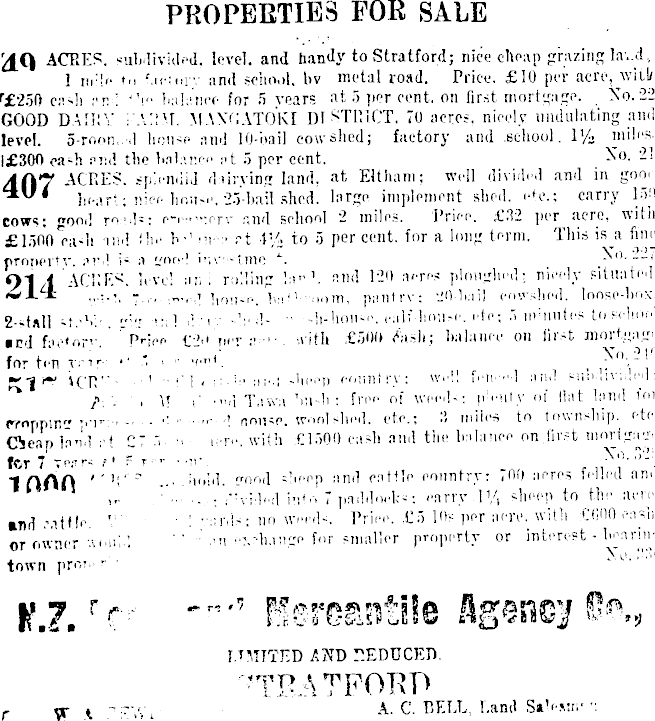 PROPERTIES FOR SALE
49 ACRES, subdivided, level, and handy to Stratford; nice cheap grazing land,
1 mile to factory and school, by metal road. Price, £10 per acre, with
£250 cash and the balance for 5 years at 5 per cent. on first mortgage. No. 22
GOOD DAIRY FARM, MANGATOKI DISTRICT, 70 acres, nicely undulating and
level. 5-roomed house and 10-bail cowshed; factory and school, 1½ miles.
£300 cash and the balance at 5 per cent. No. 21
407 ACRES, splendid dairying land, at Eltham; well divided and in good
heart; nice house, 25-bail shed, large implement shed, etc.; carry 150
cows; good roads; creamery and school 2 miles. Price, £32 per acre, with
£1500 cash and the balance at 4½ to 5 per cent. for a long term. This is a fine
property, and is a good investment. No. 227
214 ACRES, level and rolling land, and 120 acres ploughed; nicely situated
with house, bathroom, pantry; 20-bail cowshed, loose-box,
2-stall stable, gig and sheds, wash-house, calf-house, etc; 5 minutes to school
and factory. Price per acre, with £500 cash; balance on first mortgage
for ten years at 5 per cent. No.
sheep country; well fenced and subdivided;
and Tawa bush; free of weeds; plenty of flat land for
cropping house, woolshed, etc.; 3 miles to township, etc
Cheap land at acre, with £1500 cash and the balance on first mortgage
for 7 years at 5 per cent. No. 32
1000 good sheep and cattle country; 700 acres felled and
divided into 7 paddocks; carry 1¼ sheep to the acre
and cattle. yards; no weeds. Price, £5 10s per acre, with £600 cash
or owner would exchange for smaller property or interest-bearing
town No.
N.Z. Mercantile Agency Co.,
LIMITED AND REDUCED.
STRATFORD
A. C. BELL, Land Salesman